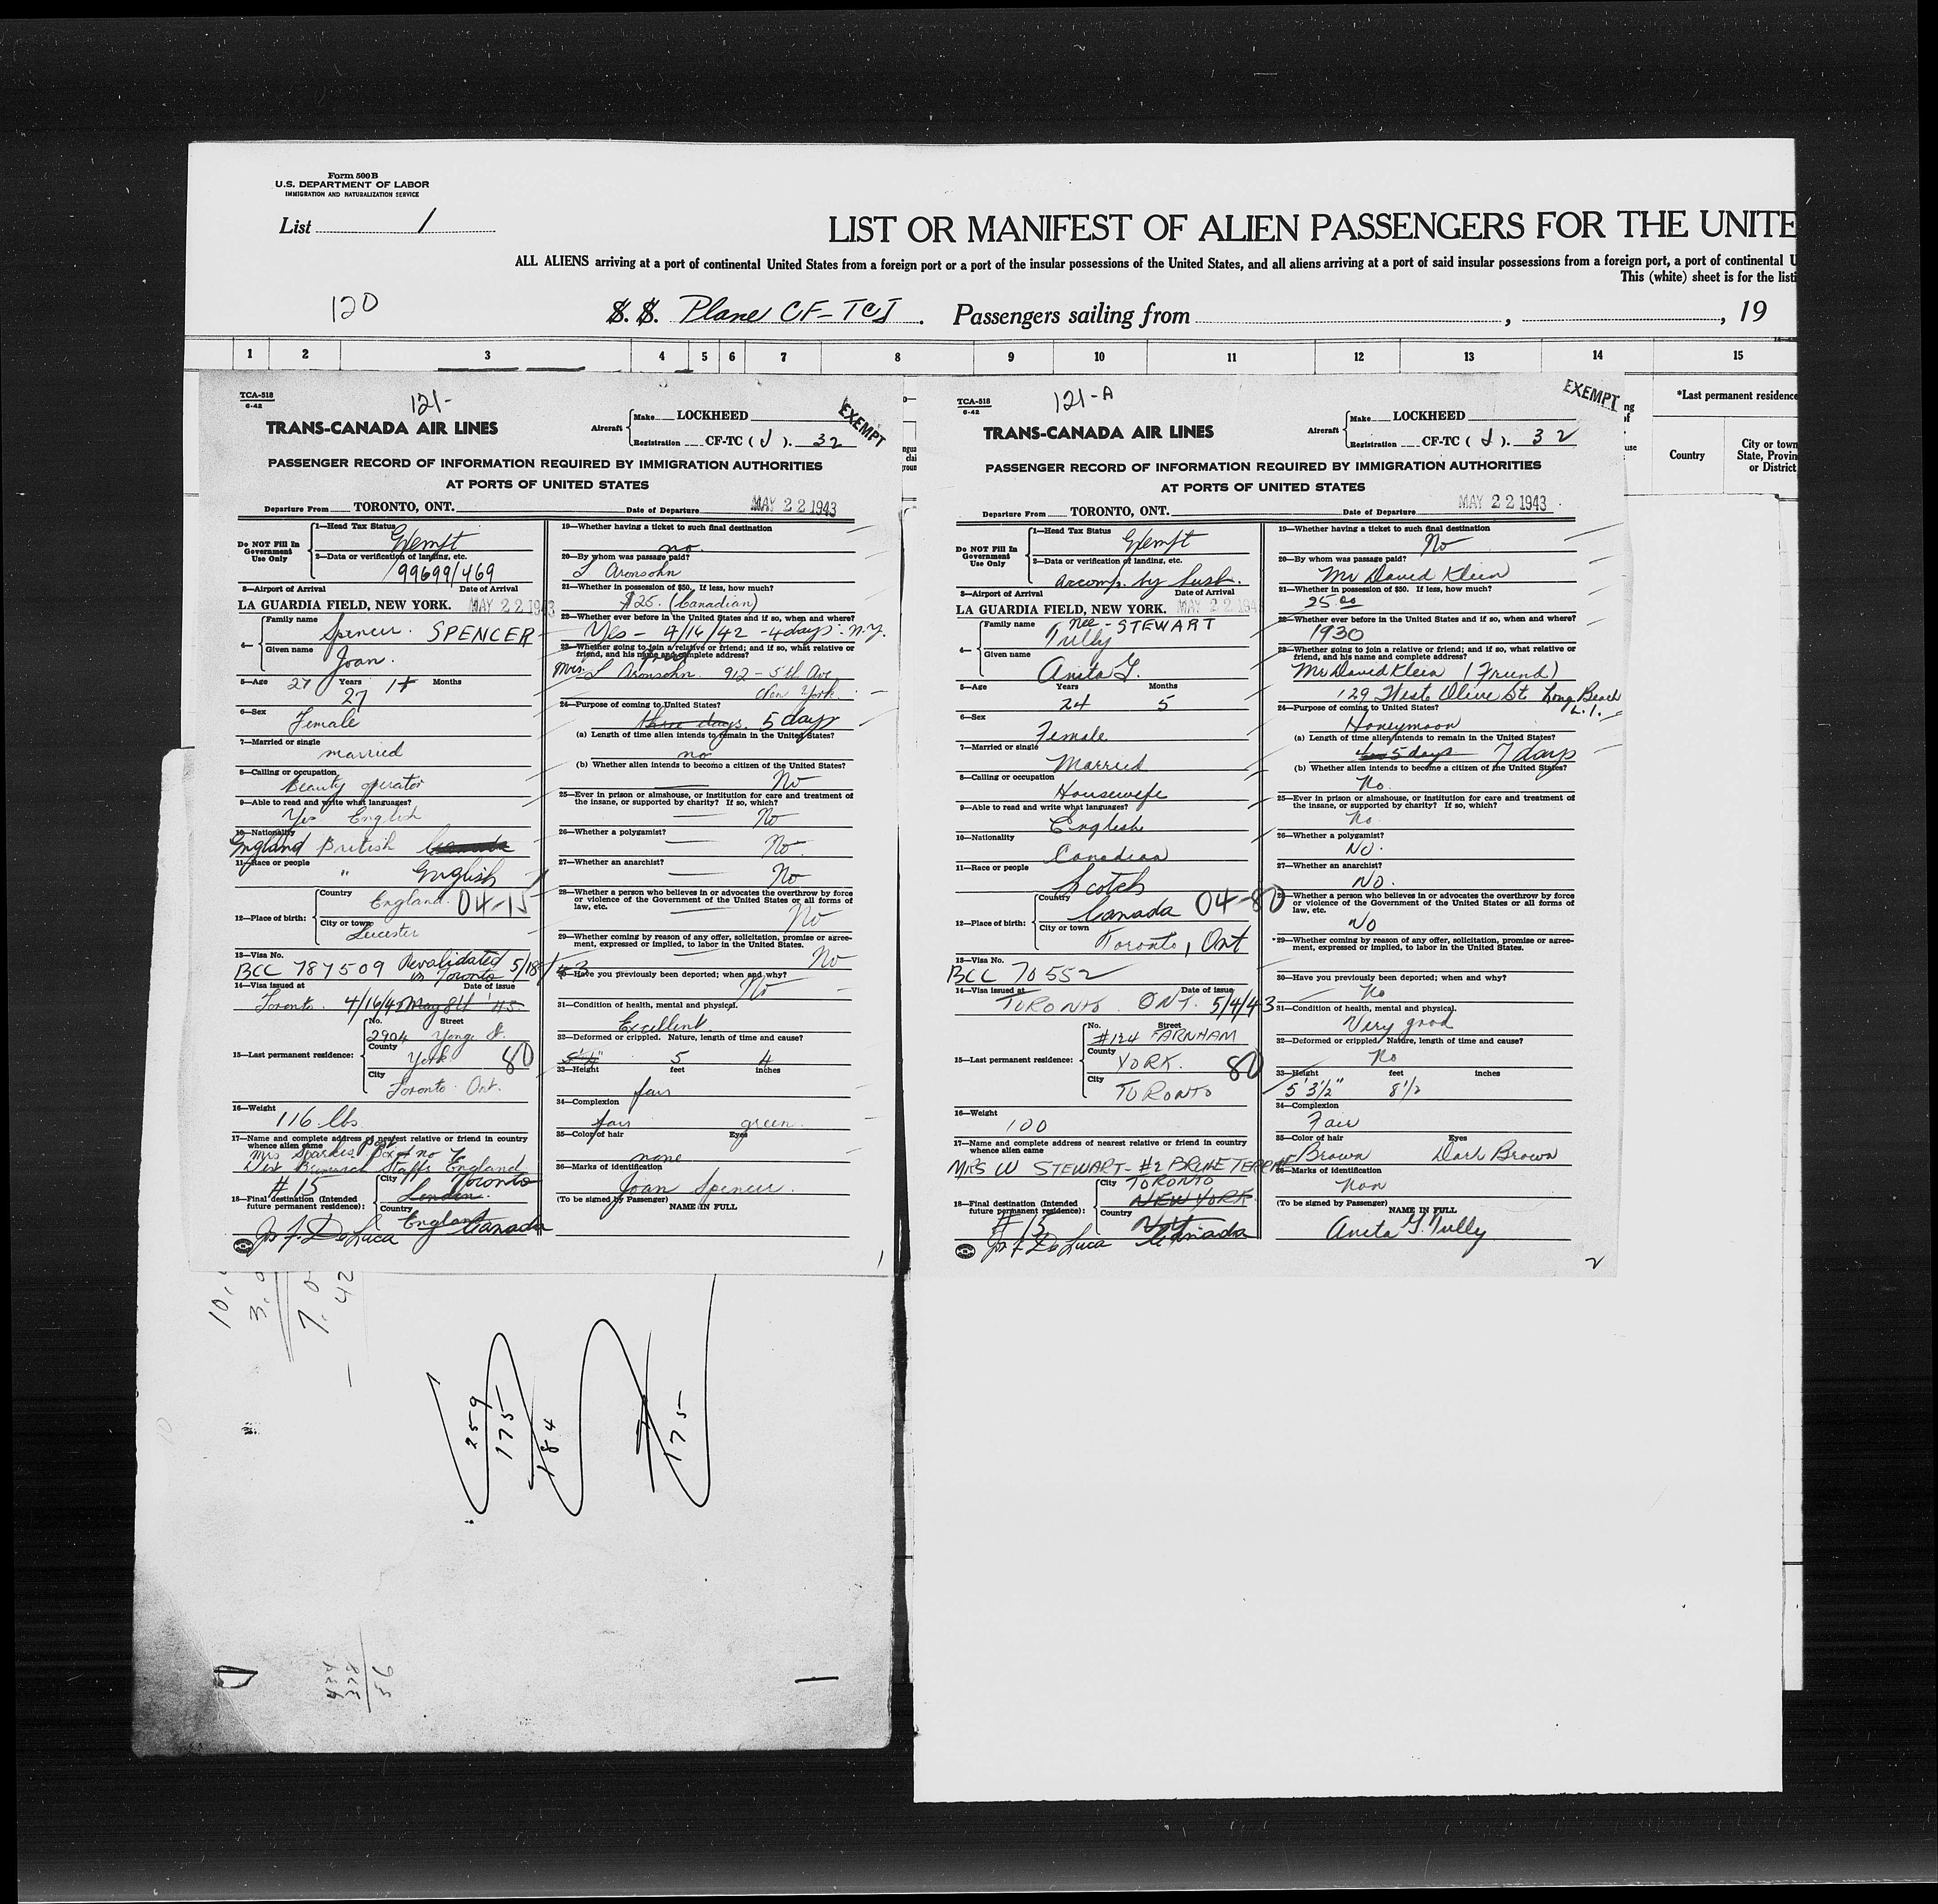 Form 500 B
U.S. DEPARTMENT OF LABOR
IMMIGRATION AND NATURALIZATION SERVICE
List 1
LIST OR MANIFEST OF ALIEN PASSENGERS FOR THE UNITE
ALL ALIENS arriving at a port of continental United States from a foreign port or a port of the insular possessions of the United States, and all aliens arriving at a port of said insular possessions from a foreign port, a port of continental U
This (white) sheet is for the listi
120
S. S. Plane CF-TCJ. Passengers sailing from , , 19
1 2 3 4 5 6 7 8 9 10 11 12 13 14 15
*Last permanent residence
Country
City or town
State, Provin
or District
TCA-518
6-42
121-
EXEMPT
TRANS-CANADA AIR LINES
Aircraft
Make LOCKHEED
Registration CF-TC ( J ). 32
PASSENGER RECORD OF INFORMATION REQUIRED BY IMMIGRATION AUTHORITIES
AT PORTS OF UNITED STATES
Departure From TORONTO, ONT. Date of Departure MAY 22 1943
Do NOT Fill In
Government
Use Only
1—Head Tax Status
Exempt
2—Data or verification of landing, etc.
99699/469
3—Airport of Arrival Date of Arrival
LA GUARDIA FIELD, NEW YORK. MAY 22 1943
4—
Family name
Spencer. SPENCER
Given name
Joan.
5—Age 27 Years Months
27
6—Sex
Female
7—Married or single
married
8—Calling or occupation
Beauty operator
9—Able to read and write what languages?
Yes English
10—Nationality
England British Canada
11—Race or people
" English
12—Place of birth:
Country
England. 04-15
City or town
Leicester
13—Visa No.
BCC 787509 Revalidated in Toronto 5/18/43
14—Visa issued at Date of issue
Toronto. 4/16/42 May 8th '43.
15—Last permanent residence:
No. Street
2904 Yonge St.
County
York 80
City
Toronto Ont.
16—Weight
116 lbs.
17—Name and complete address of nearest relative or friend in country
whence alien came
Mrs Sparkes
Staffs England
#15
18—Final destination (Intended
future permanent residence):
City Toronto
London.
Country
England Canada
Jos F. DeLuca
19—Whether having a ticket to such final destination
no.
20—By whom was passage paid?
L Aronsohn
21—Whether in possession of $50. If less, how much?
$25. (Canadian)
22—Whether ever before in the United States and if so, when and where?
Yes - 4/16/42 - 4 days - N.Y.
23—Whether going to join a relative or friend; and if so, what relative or
friend, and his name and complete address?
Mrs. L Aronsohn. 912 - 5th Ave
New York.
24—Purpose of coming to United States?
three days. 5 days
(a) Length of time alien intends to remain in the United States?
no
(b) Whether alien intends to become a citizen of the United States?
No
25—Ever in prison or almshouse, or institution for care and treatment of
the insane, or supported by charity? If so, which?
No
26—Whether a polygamist?
No.
27—Whether an anarchist?
No
28—Whether a person who believes in or advocates the overthrow by force
or violence of the Government of the United States or all forms of
law, etc.
No
29—Whether coming by reason of any offer, solicitation, promise or agree-
ment, expressed or implied, to labor in the United States.
No
30—Have you previously been deported; when and why?
No
31—Condition of health, mental and physical.
Excellent.
32—Deformed or crippled. Nature, length of time and cause?
5'4" 5 4
33—Height feet inches
fair
34—Complexion
fair green.
35—Color of hair Eyes
none
36—Marks of identification
Joan Spencer.
(To be signed by Passenger)
NAME IN FULL
1
TCA-518
6-42
121-A
EXEMPT
TRANS-CANADA AIR LINES
Aircraft
Make LOCKHEED
Registration CF-TC ( J ). 32
PASSENGER RECORD OF INFORMATION REQUIRED BY IMMIGRATION AUTHORITIES
AT PORTS OF UNITED STATES
Departure From TORONTO, ONT. Date of Departure MAY 22 1943
Do NOT Fill In
Government
Use Only
1—Head Tax Status
Exempt
2—Data or verification of landing, etc.
accomp. by husb.
3—Airport of Arrival Date of Arrival
LA GUARDIA FIELD, NEW YORK. MAY 22 194
4—
Family name nee - STEWART
Tully
Given name
Anita G.
5—Age Years Months
24 5
6—Sex
Female
7—Married or single
Married
8—Calling or occupation
Housewife
9—Able to read and write what languages?
English
10—Nationality
Canadian
11—Race or people
Scotch
12—Place of birth:
Country
Canada 04-80
City or town
Toronto, Ont
13—Visa No.
BCC 70552
14—Visa issued at Date of issue
TORONTO ONT. 5/4/43
15—Last permanent residence:
No. Street
#124 FARNHAM
County
YORK. 80
City
TORONTO
16—Weight
100
17—Name and complete address of nearest relative or friend in country
whence alien came
MRS W STEWART - #2
18—Final destination (Intended
future permanent residence):
City TORONTO
NEW YORK
Country
Canada
#15
Jos F. DeLuca
19—Whether having a ticket to such final destination
No
20—By whom was passage paid?
Mr David Klein
21—Whether in possession of $50. If less, how much?
25.00
22—Whether ever before in the United States and if so, when and where?
1930
23—Whether going to join a relative or friend; and if so, what relative or
friend, and his name and complete address?
Mr David Klein (Friend)
129 West Olive St Long Beach
L.I.
24—Purpose of coming to United States?
Honeymoon
(a) Length of time alien intends to remain in the United States?
5 days 7 days
(b) Whether alien intends to become a citizen of the United States?
No.
25—Ever in prison or almshouse, or institution for care and treatment of
the insane, or supported by charity? If so, which?
No
26—Whether a polygamist?
No.
27—Whether an anarchist?
No.
28—Whether a person who believes in or advocates the overthrow by force
or violence of the Government of the United States or all forms of
law, etc.
No
29—Whether coming by reason of any offer, solicitation, promise or agree-
ment, expressed or implied, to labor in the United States.
30—Have you previously been deported; when and why?
No
31—Condition of health, mental and physical.
Very good
32—Deformed or crippled. Nature, length of time and cause?
No
33—Height feet inches
5' 3½" 8½
34—Complexion
Fair
35—Color of hair Eyes
Brown Dark Brown
36—Marks of identification
Non
(To be signed by Passenger)
NAME IN FULL
Anita G. Tully
2
259
175
184
175